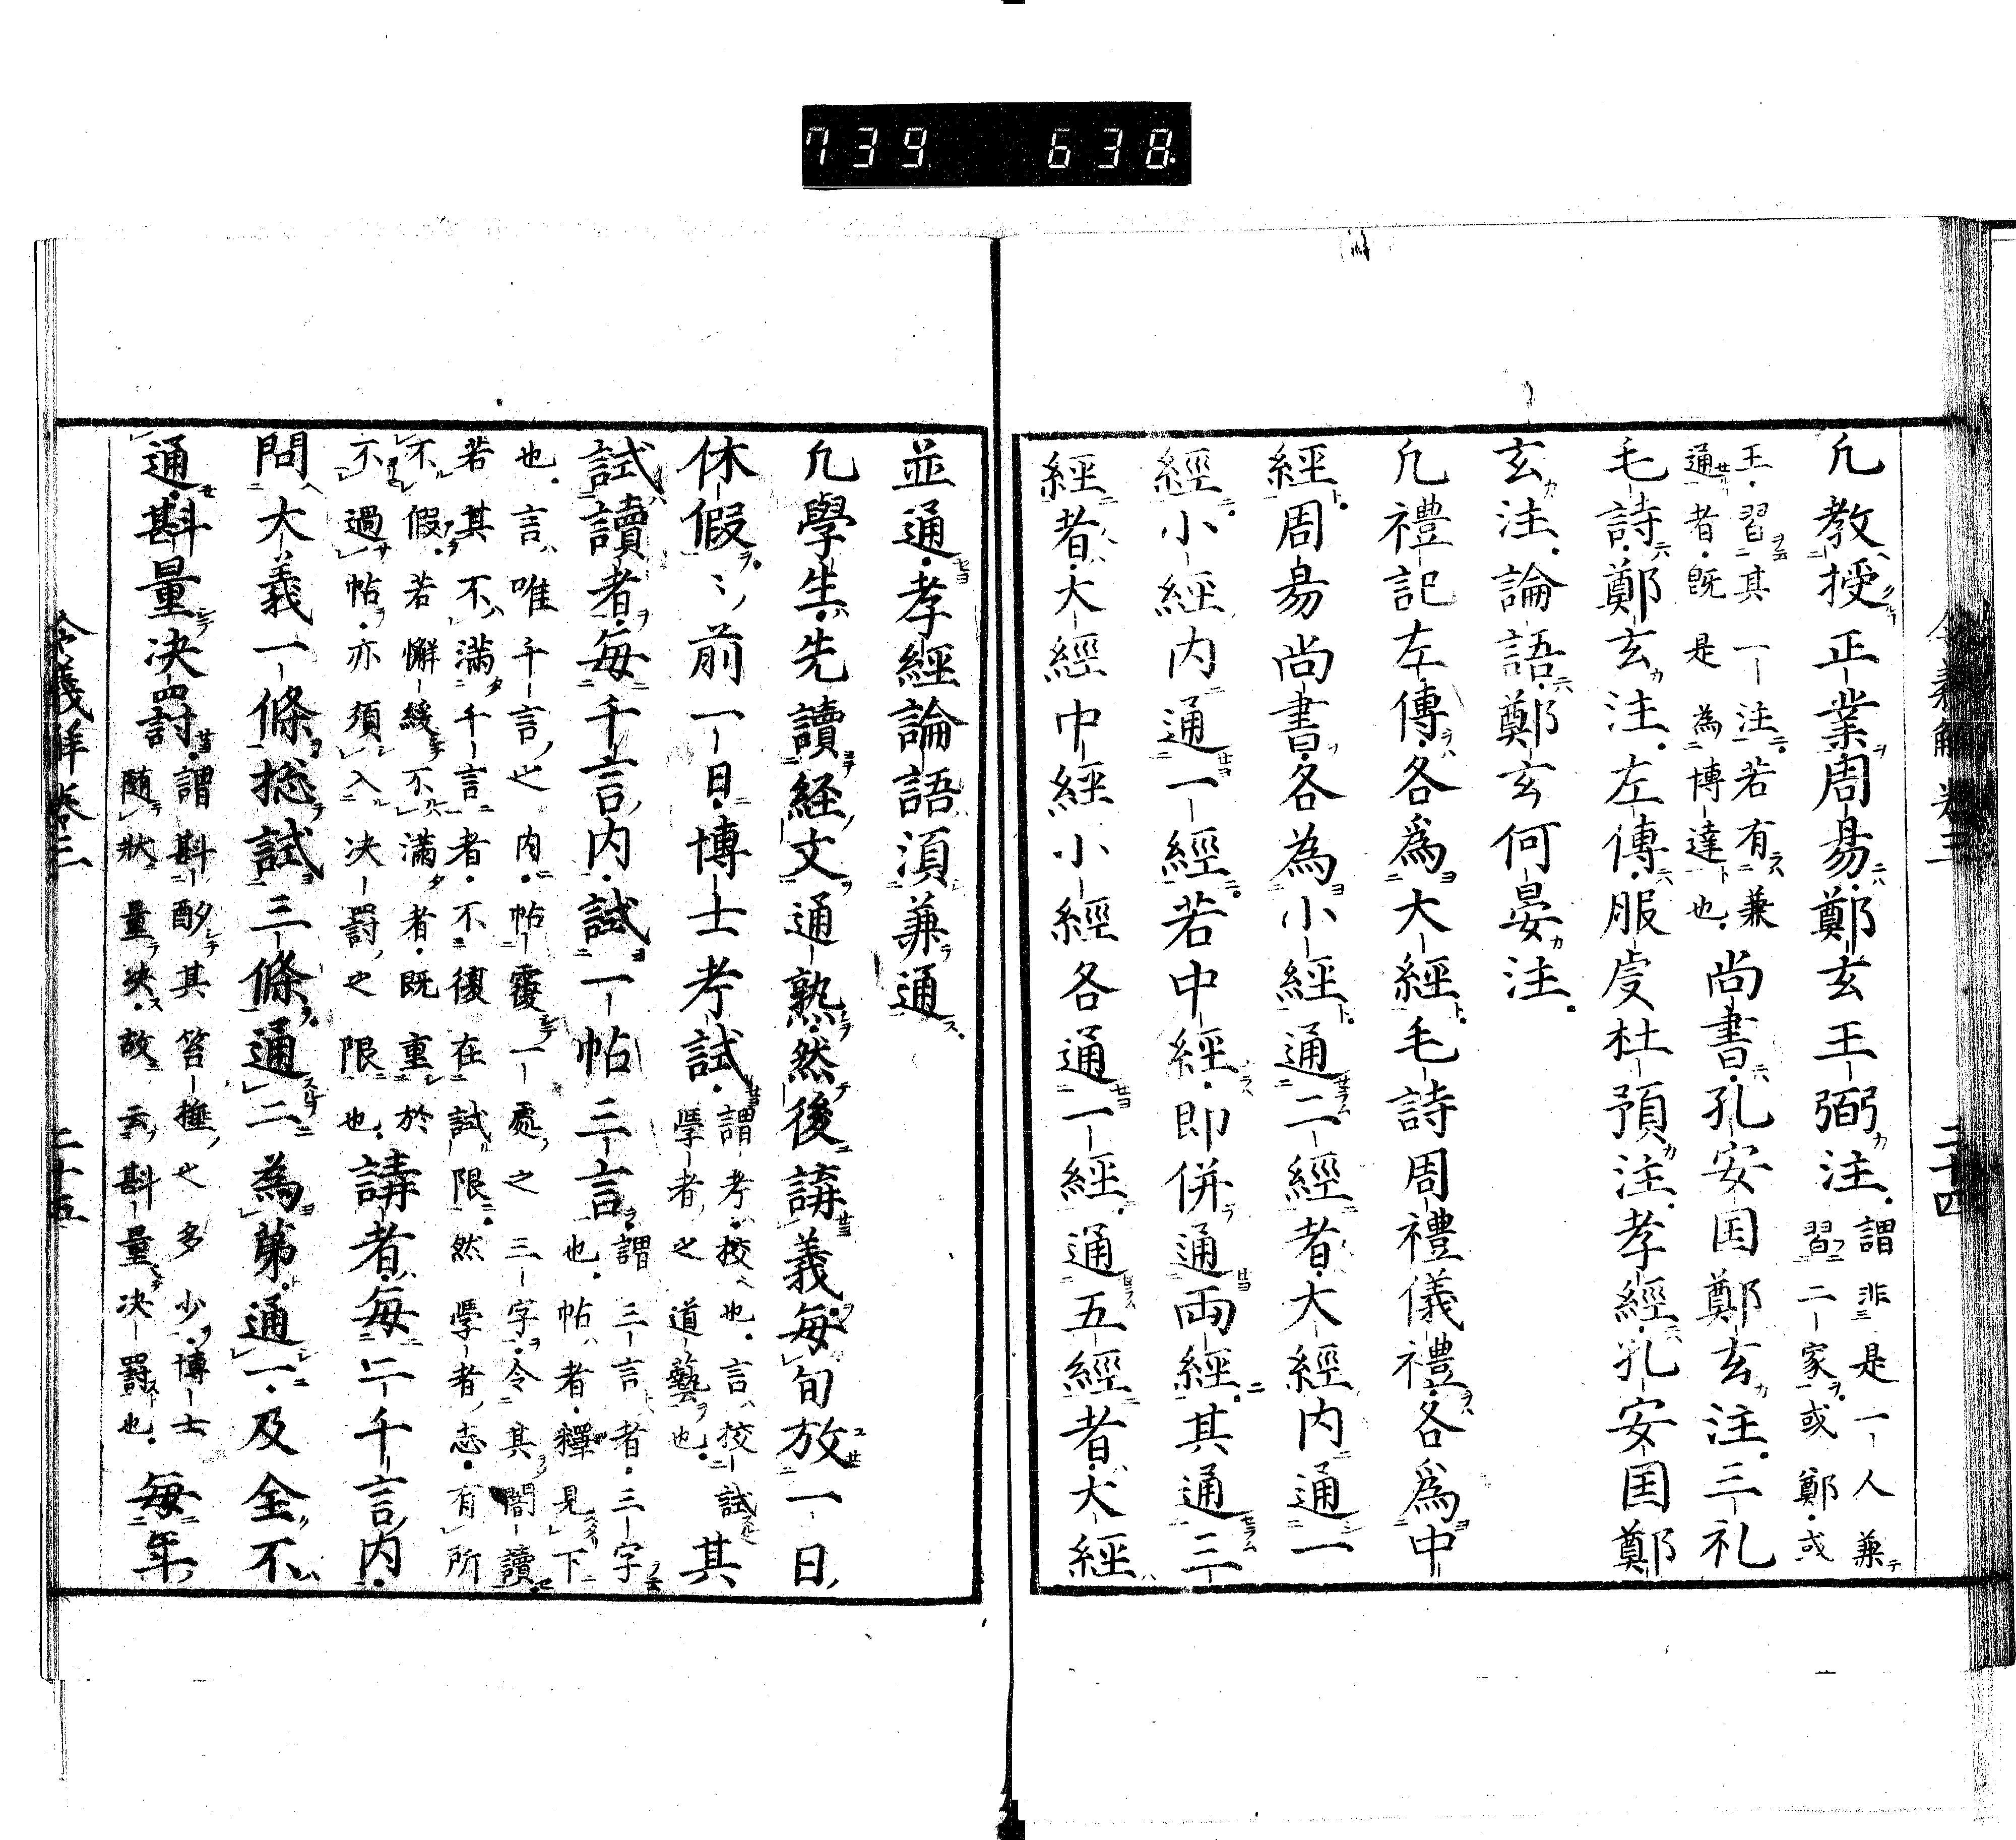 739 638
令義解卷三 二十四
凢教授正業周易鄭玄王弼注謂非是一人兼
習二家或鄭或
王習其一注若有兼
通者既是為博達也尚書孔安国鄭玄注三礼
毛詩鄭玄注左傳服虔杜預注孝經孔安国鄭
玄注論語鄭玄何晏注
凢禮記左傳各爲大經毛詩周禮儀禮各爲中
經周易尚書各為小經通二經者大經内通一
經小經内通一經若中經即併通両經其通三
經者大經中經小經各通一經通五經者大經
並通孝經論語須兼通
凢學生先讀経文通熟然後講義毎旬放一日
休假〻前一日博士考試謂考校也言校試
學者之道藝也其
試讀者毎千言内試一帖三言謂三言者三字
也帖者釋見下
也言唯千言之内帖覆一處之三字令其闇讀
若其不滿千言者不復在試限然學者志有所
不假若懈緩不滿者既重於
不過帖亦須入决罸之限也講者毎二千言内
問大義一條捴試三條通二為第通一及全不
通斟量决罸謂斟酌其笞捶之多少博士
随狀量决故云斟量决罸也毎年
令義解卷三 二十五